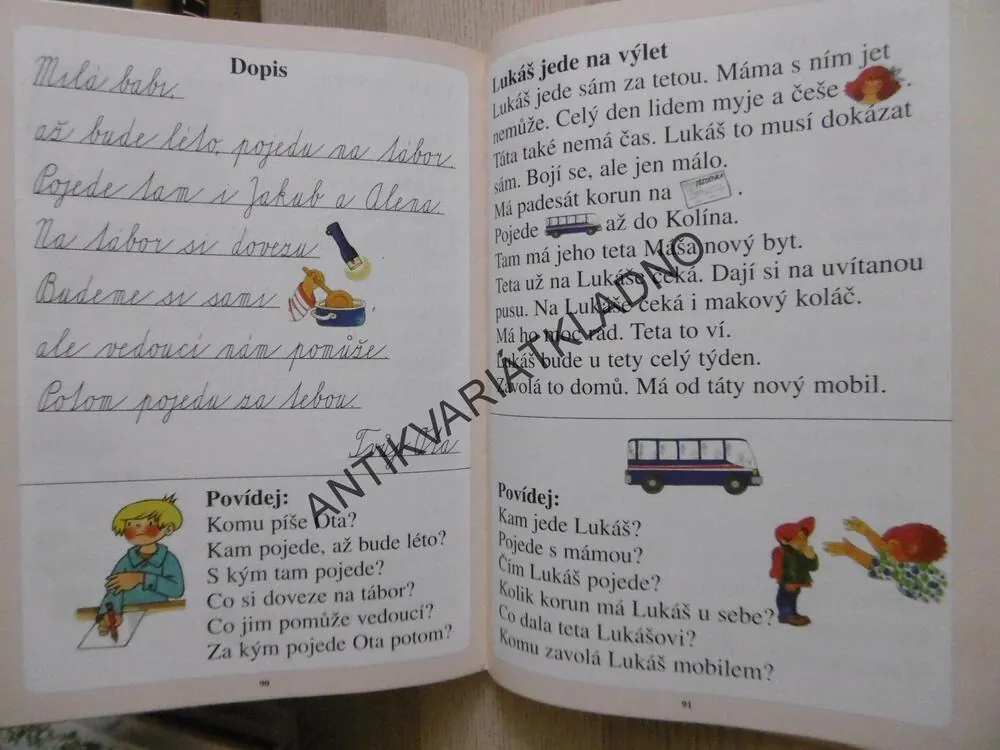 Dopis
Milá babi,
až bude léto, pojedu na tábor.
Pojede tam i Jakub a Alena.
Na tábor si dovezu
Budeme si sami
ale vedoucí nám pomůže.
Potom pojedu za tebou.
Tvůj Ota
Povídej:
Komu píše Ota?
Kam pojede, až bude léto?
S kým tam pojede?
Co si doveze na tábor?
Co jim pomůže vedoucí?
Za kým pojede Ota potom?
90
Lukáš jede na výlet
Lukáš jede sám za tetou. Máma s ním jet
nemůže. Celý den lidem myje a češe .
Táta také nemá čas. Lukáš to musí dokázat
sám. Bojí se, ale jen málo.
Má padesát korun na JÍZDENKA .
Pojede až do Kolína.
Tam má jeho teta Máša nový byt.
Teta už na Lukáše čeká. Dají si na uvítanou
pusu. Na Lukáše čeká i makový koláč.
Má ho moc rád. Teta to ví.
Lukáš bude u tety celý týden.
Zavolá to domů. Má od táty nový mobil.
Povídej:
Kam jede Lukáš?
Pojede s mámou?
Čím Lukáš pojede?
Kolik korun má Lukáš u sebe?
Co dala teta Lukášovi?
Komu zavolá Lukáš mobilem?
91
ANTIKVARIÁTKLADNO